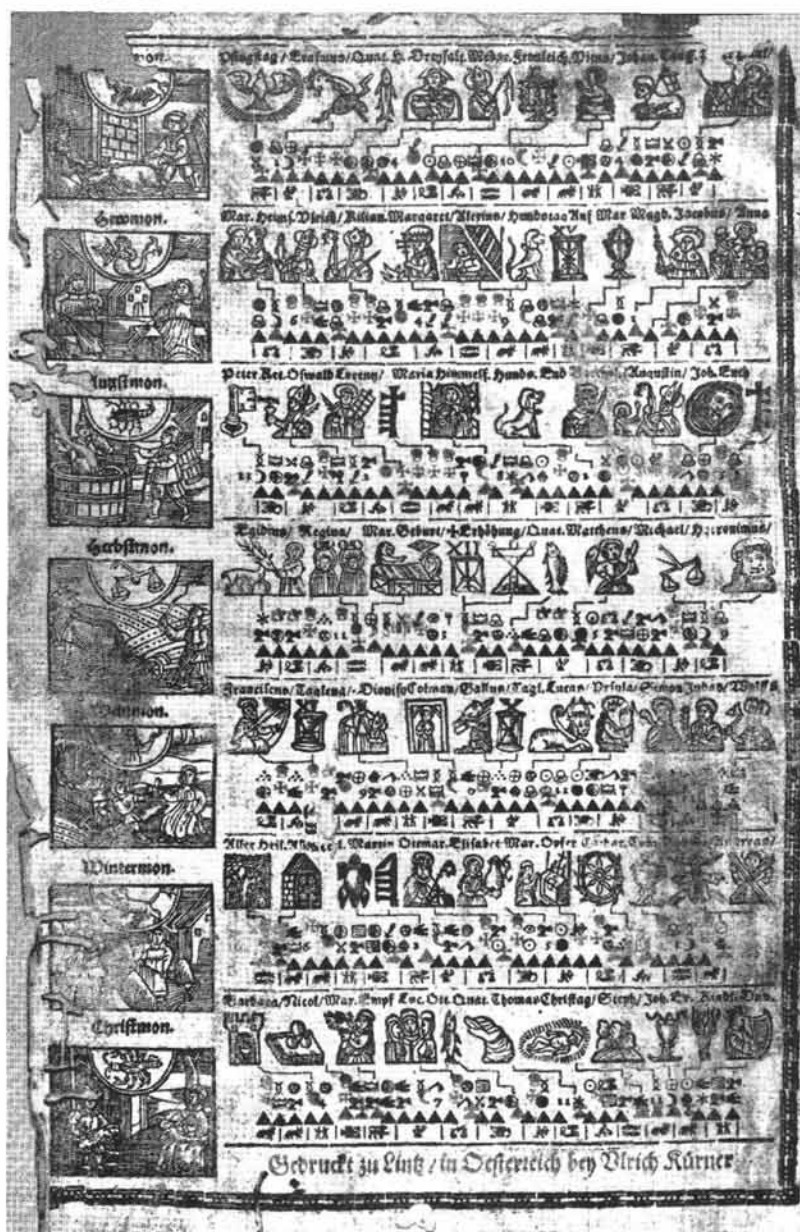 mon.
Pfingstag/ Erasmus/ Quat. H. Dreyfalt. Medar. Fronleich. Vitus/ Johan.
Hewmon.
Mar. Heims. Vlrich/ Kilian. Margaret/ Alexius/ Hundstag Anf Mar Magd. Jacobus/ Anna
Augstmon.
Peter Ket. Oswald Lorentz/ Maria Himmelf. Hunds. End Augustin/ Joh. Enth
Herbstmon.
Egidius/ Regina/ Mar. Geburt/ ✠Erhöhung/ Quat. Mattheus/ Michael/ Hieronimus/
Franciscus/ Dionisy Colman/ Gallus/ Tagl. Lucas/ Vrsula/ Simon Judas/ Wolff
Wintermon.
Aller Heil. Martin Otmar. Elisabet Mar. Opfer Andreas/
Christmon.
Barbara/ Nicol/ Mar. Empf Luc. Ott. Quat. Thomas Christag/ Steph/ Joh. Ev. Kindl.
Gedruckt zu Lintz/ in Oesterreich bey Vlrich Kürner